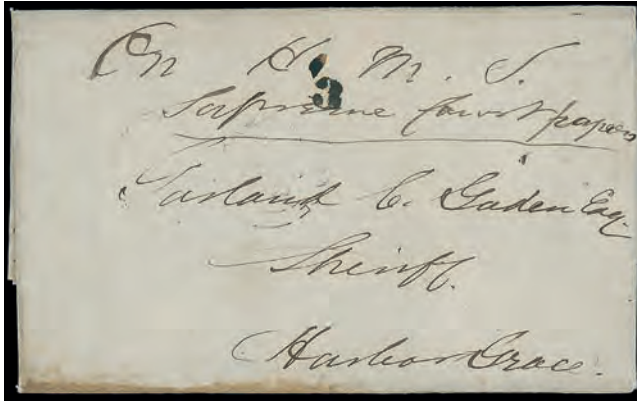 On H. M. S.
3
Supreme Court papers
Garland C. Gaden Esq.
Sheriff.
Harbor Grace.